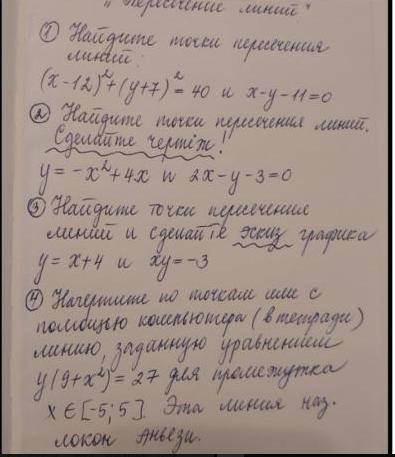 "Пересечение линий"
① Найдите точки пересечения
линий:
(x-12)²+(y+7)²=40 и x-y-11=0
② Найдите точки пересочения линий.
Сделайте чертіж!
y=-x²+4x и 2x-y-3=0
③ Найдите точки пересечения
линий и сделайте эскиз графика
y=x+4 и xy=-3
④ Начертите по точкам или с
помощью компьютера (в тетради)
линию, заданную уравнением
y(9+x²)=27 для промежутка
x∈[-5;5]. Эта линия наз.
локон Аньези.